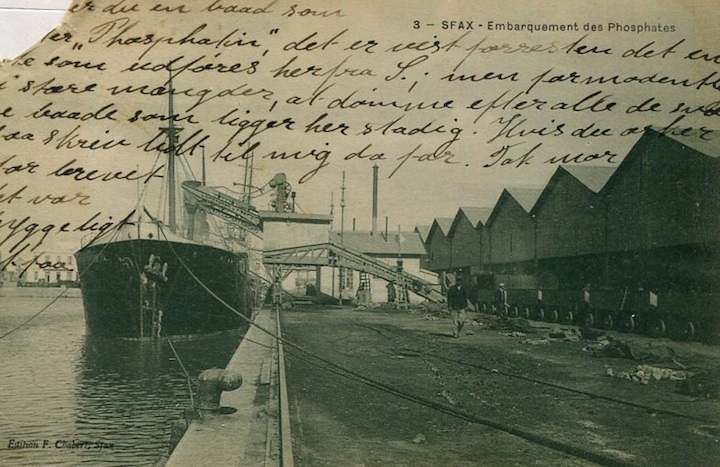 er du en baad som
3 - SFAX - Embarquement des Phosphates
"Phosphatin", det er vist forresten det en
e som udføres herfra S.; men formodentl
i store mængder, at dømme efter alle de sm
e baade som ligger her stadig. Hvis du
paa skriv lidt til mig da far. Tak mor
for brevet
det var
hyggeligt
Edition F. Chabert, Sfax